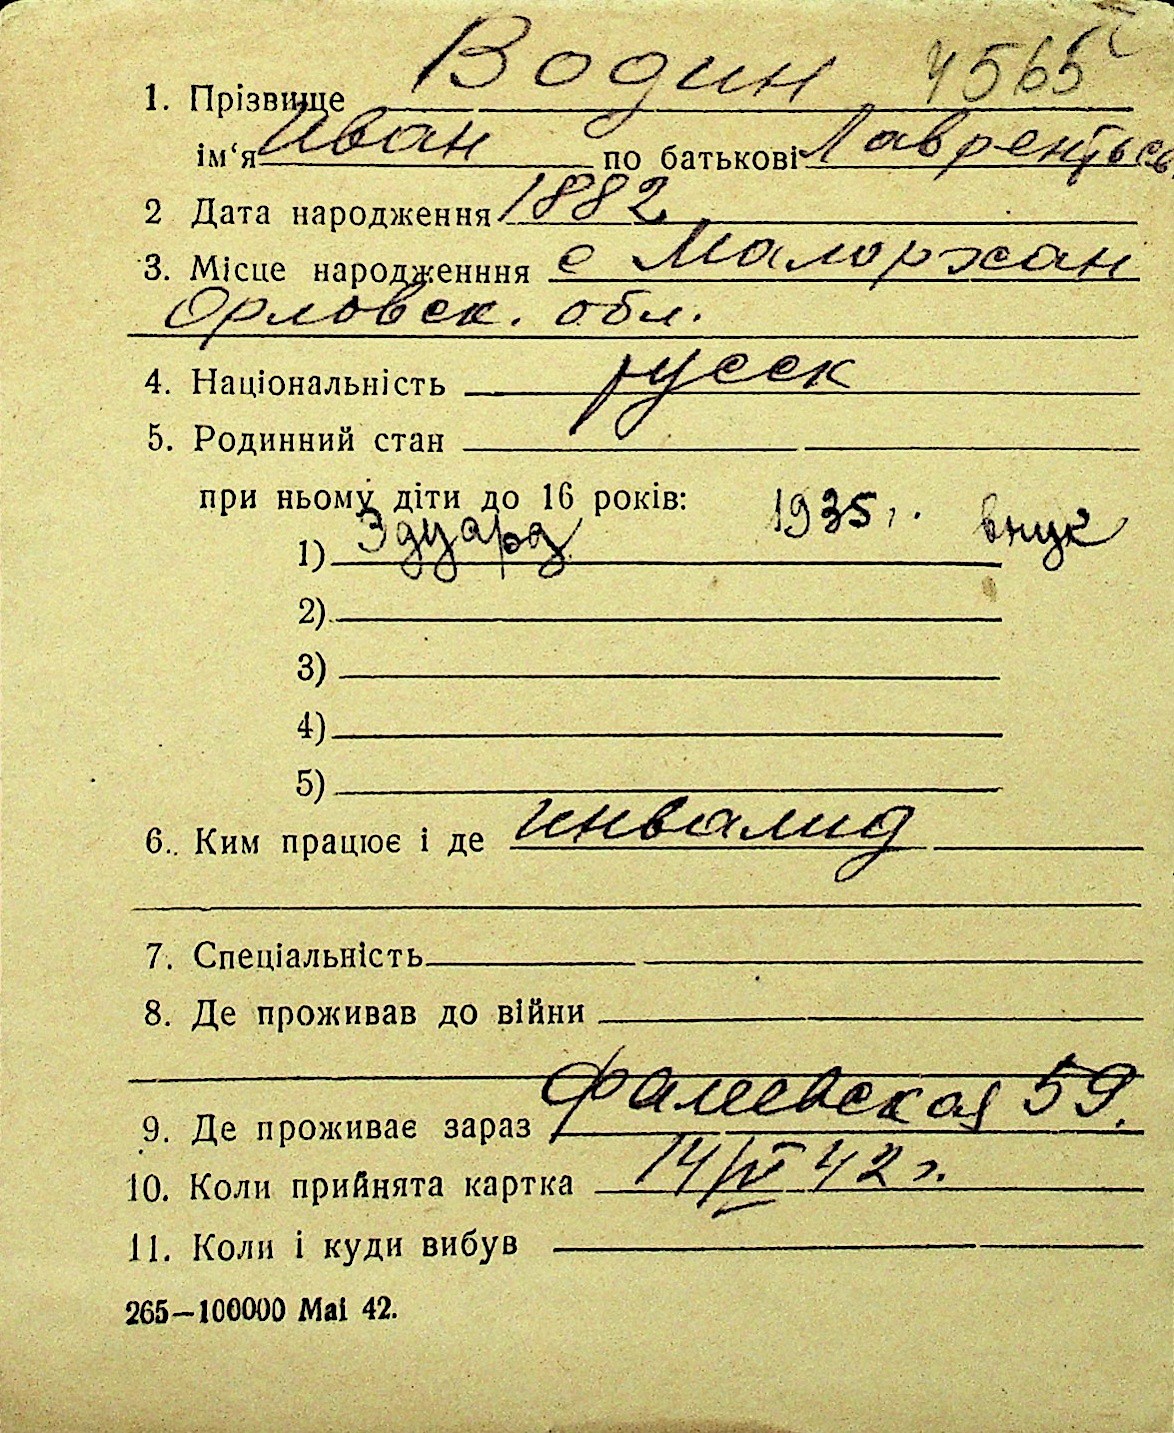 1. Прізвище Водин 4565
ім‘я Иван по батькові Лаврентьев
2 Дата народження 1882
3. Місце народженння с Малоржан
Орловск. обл.
4. Національність русск
5. Родинний стан
при ньому діти до 16 років:
1) Эдуард 1935 г. внук
2)
3)
4)
5)
6. Ким працює і де инвалид
7. Спеціальність
8. Де проживав до війни
9. Де проживає зараз Фалеевская 59.
10. Коли прийнята картка 14/IV 42 г.
11. Коли і куди вибув
265—100000 Mai 42.